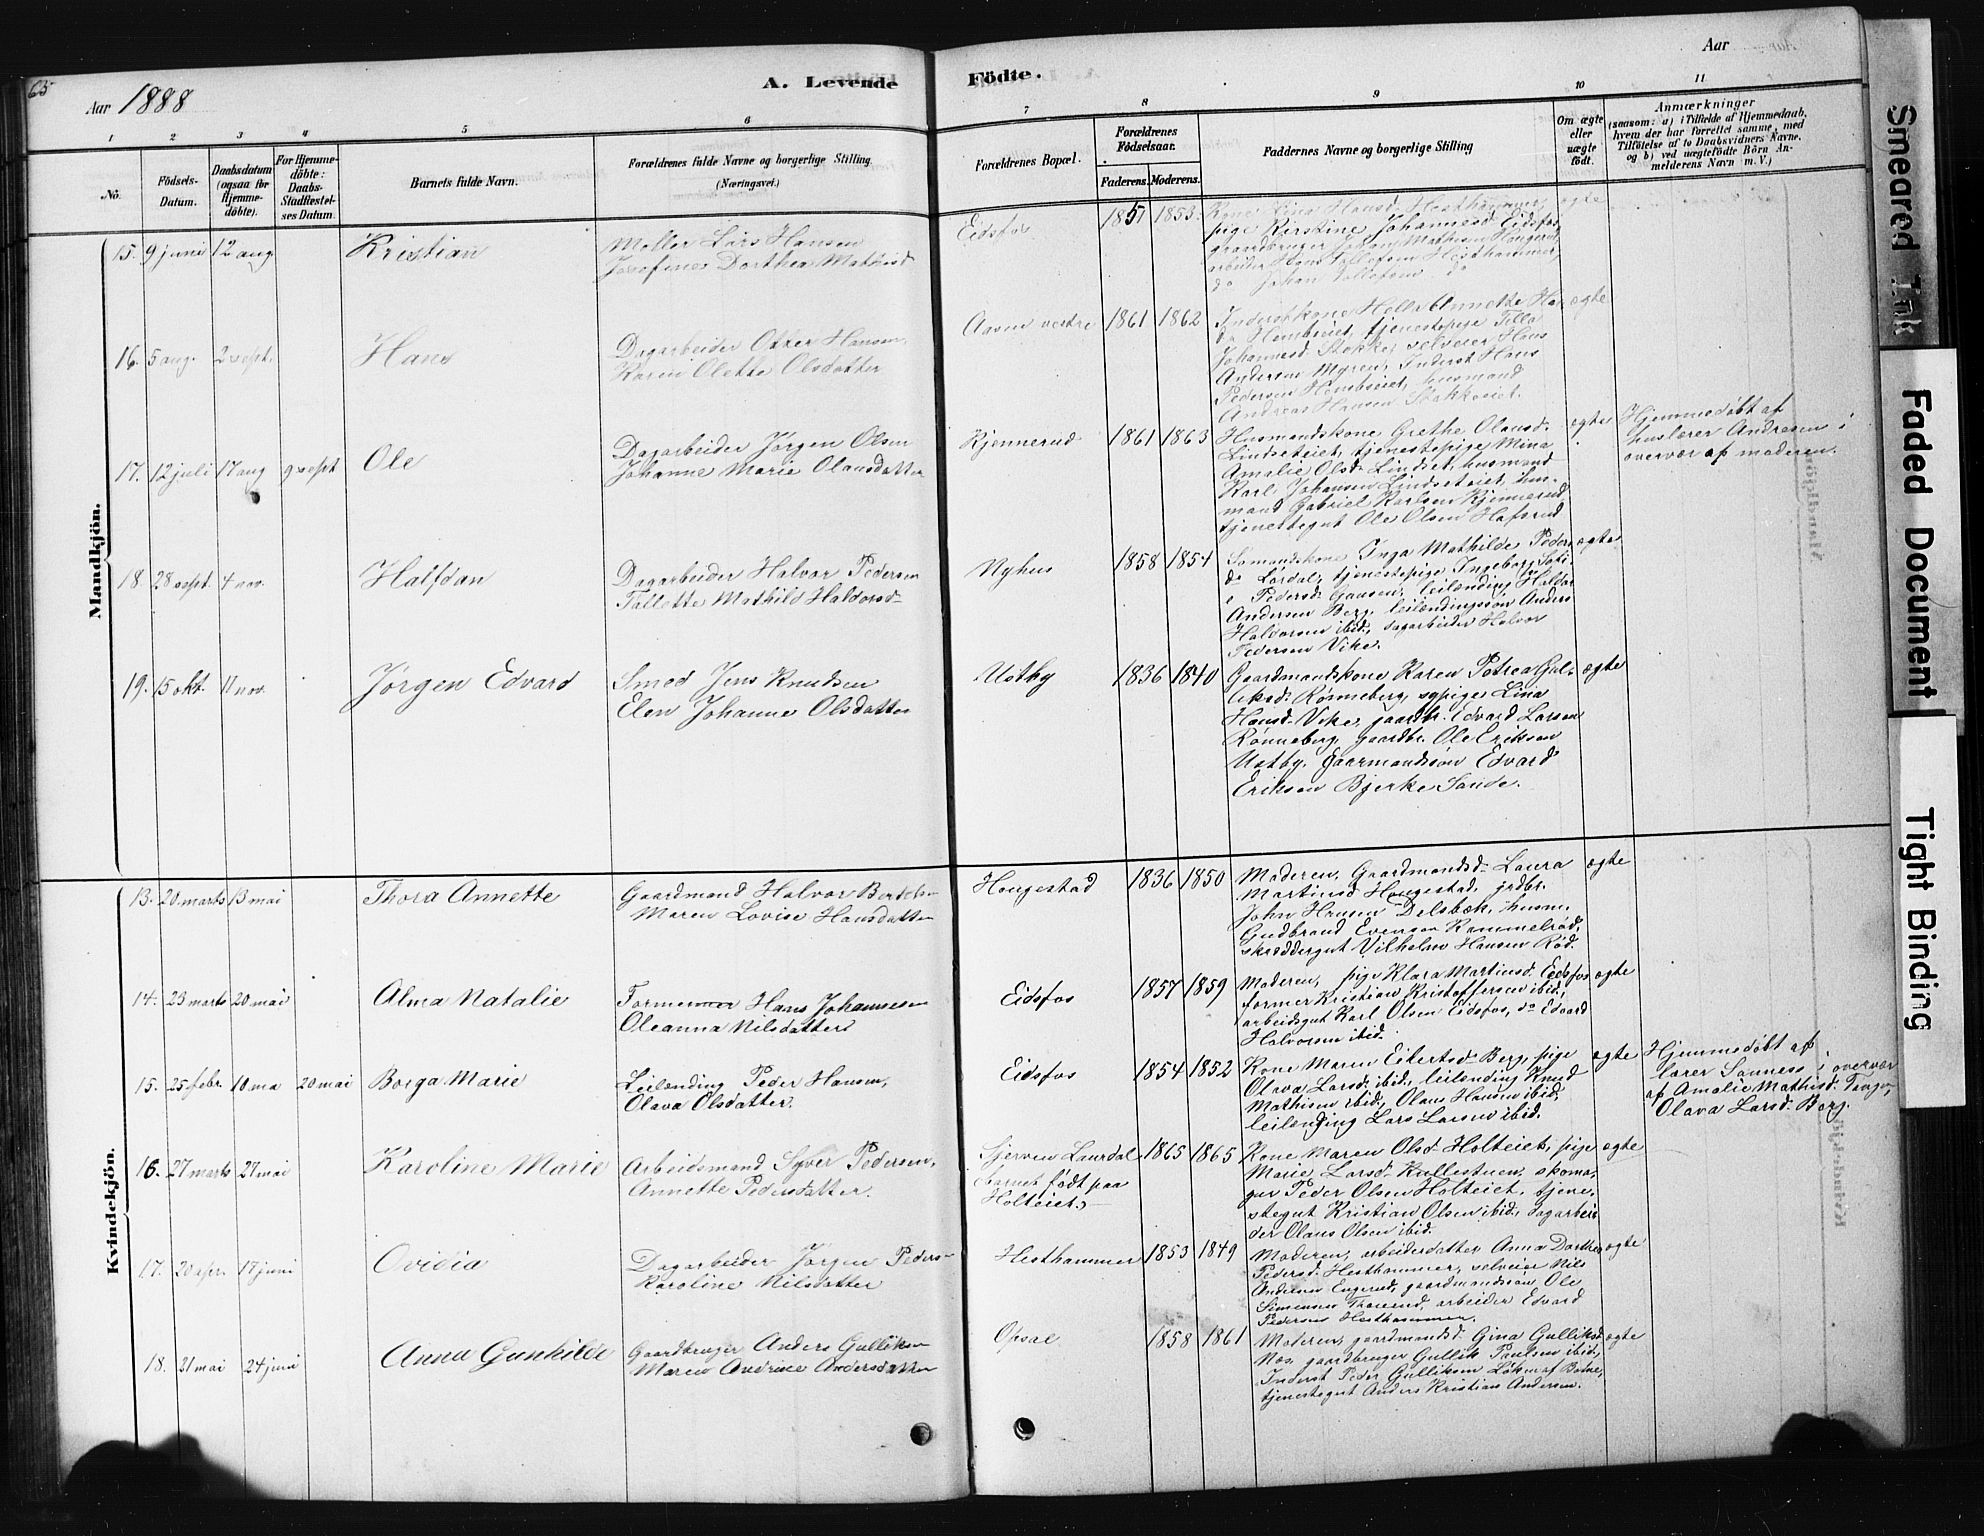 65
Aar 1888
A. Levende
Födte.
Aar
1 2 3 4 5 6 7 8 9 10 11
No.
Födsels-Datum.
Daabsdatum (ogsaa for Hjemme-döbte).
For Hjemme-döbte: Daabs-Stadfæstel-ses Datum.
Barnets fulde Navn.
Forældrenes fulde Navne og borgerlige Stilling.
(Næringsvei.)
Forældrenes Bopæl.
Forældrenes Födselsaar.
Faderens. Moderens.
Faddernes Navne og borgerlige Stilling
Om ægte eller uægte födt.
Anmærkninger
(saasom: a) i Tilfælde af Hjemmedaab,
hvem der har forrettet samme, med
Tilföielse af to Daabsvidners Navne.
og b) ved uægtefödte Börn An-
melderens Navn m. V.)
Mandkjön.
15. 9 juni 12 aug Kristian
Møller Lars Hansen
Josefine Dorthea Mathisd
Eidsfos 1851 1853 ægte
Kone Lina Hansd. Hesthammer,
pige Kirstine Johannesd. Eidsfos,
gaardbruger Johan Mathisen
arbeider Hans Tollefsen Hesthammer,
do Johan Tollefsen do
16. 5 aug. 2 sept. Hans
Dagarbeider Otter Hansen,
Karen Olette Olsdatter
Aasen vestre 1861 1862 ægte
Inderstkone Helle Annette Han
do Hembseiet, tjenestepige Tilla
Johannesd. Stokke, selveier Hans
Andersen Myren, Inderst Hans
Pedersen Hembseiet, husmand
Andreas Hansen Stokkeiet.
17. 12 juli 17 aug 9 sept Ole
Dagarbeider Jørgen Olsen
Johanne Marie Olausdatter
Kjennerud 1861 1863 ægte
Husmandskone Grethe Olausd.
Lindseteiet, tjenestepige Mina
Amalie Olsd. Lindset, husmand
Karl Johansen Lindseteiet, hus-
mand Gabriel Karlsen Kjennerud,
tjenestegut Ole Olsen Hafsrud
Hjemmedøbt af
huslærer Andresen i
overvær af moderen.
18. 28 sept. 4 nov. Halfdan
Dagarbeider Halvor Pedersen
Tallette Mathild Haldorsd
Nyhus 1858 1854 ægte
Sømandskone Inga Mathilde Peders
do Lørdal, tjenestepige Ingeborg Sofi
e Pedersd. Gausen, leilending Haldor
Andersen Berg, leilendingsøn Anders
Halvorsen ibid., dagarbeider Halvor
Pedersen Vike.
19. 15 okt. 11 nov. Jørgen Edvard
Smed Jens Knudsen
Elen Johanne Olsdatter
Ustby 1836 1840 ægte
Gaardmandskone Karen Petrea Gul-
liksd. Rønneberg, sypige Lina
Hansd. Vike, gaardbr. Edvard Larsen
Rønneberg, gaardbr. Ole Eriksen
Ustby, Gaarmandsøn Edvard
Eriksen Bjerke Sande.
Kvindekjön.
13. 20 marts 13 mai Thora Annette
Gaardmand Halvor Bertels-
Maren Lovise Hansdatter
Hougestad 1836 1850 ægte
Moderen, Gaardmandsd. Laura
Martinsd Hougestad, jrdbr.
John Hansen Delsbæk, husm.
Gudbrand Evensen Rammelrød,
skræddergut Vilhelm Hansen Rød.
14. 23 marts 20 mai Alma Natalie
Former Hans Johannesen
Oleanna Nilsdatter
Eidsfos 1857 1859 ægte
Moderen, pige Klara Martinsd. Eidsfos
former Kristian Kristoffersen ibid.,
arbeidsgut Karl Olsen Eidsfos, do Edvard
Halvorsen ibid.
15. 25 febr. 10 ma 20 mai Borga Marie
Leilending Peder Hansen,
Olava Olsdatter.
Eidsfos 1854 1852 ægte
Kone Maren Eilertsd. Berg, pige
Olava Larsd. ibid., leilending Knud
Mathisen ibid., Olaus Hansen ibid.
leilending Lars Larsen ibid.
Hjemmedøbt af
lærer Sanness i overvær
af Amalie Mathisd.
Olava Larsd. Berg.
16. 27 marts 27 mai Karoline Marie
Arbeidsmand Syver Pedersen,
Annette Pedersdatter.
Laurdal
barnet født paa
Holteiet
1865 1865 ægte
Kone Maren Olsd. Holteiet, pige
Marie Larsd. Kullestuen, skoma-
ger Peder Olsen Holteiet, tjene-
stegut Kristian Olsen ibid., dagarbei
der Olaus Olsen ibid.
17. 20 apr. 17 juni Ovidia
Dagarbeider Jørgen Peders-
Karoline Nilsdatter
Hesthammer 1853 1849 ægte
Moderen, arbeiderdatter Anna Dorthea
Pedersd. Hesthammer, selveier Nils
Andersen Engerud, gaardmandssøn Ole
Simensen, arbeider Edvard
Pedersen Hesthammer.
18. 21 mai 24 juni Anna Gunhilde
Gaardbruger Anders Gulliksen
Maren Andrine Andersdatter
Opsal 1858 1861 ægte
Moderen, gaardmandsd. Gina Gulliksd
Næs, gaardbruger Gullik Paulsen ibid.,
Inderst Peder Gulliksen Løken af Botne,
tjenestegut Anders Kristian Andersen.
Smeared Ink
Faded Document
Tight Binding